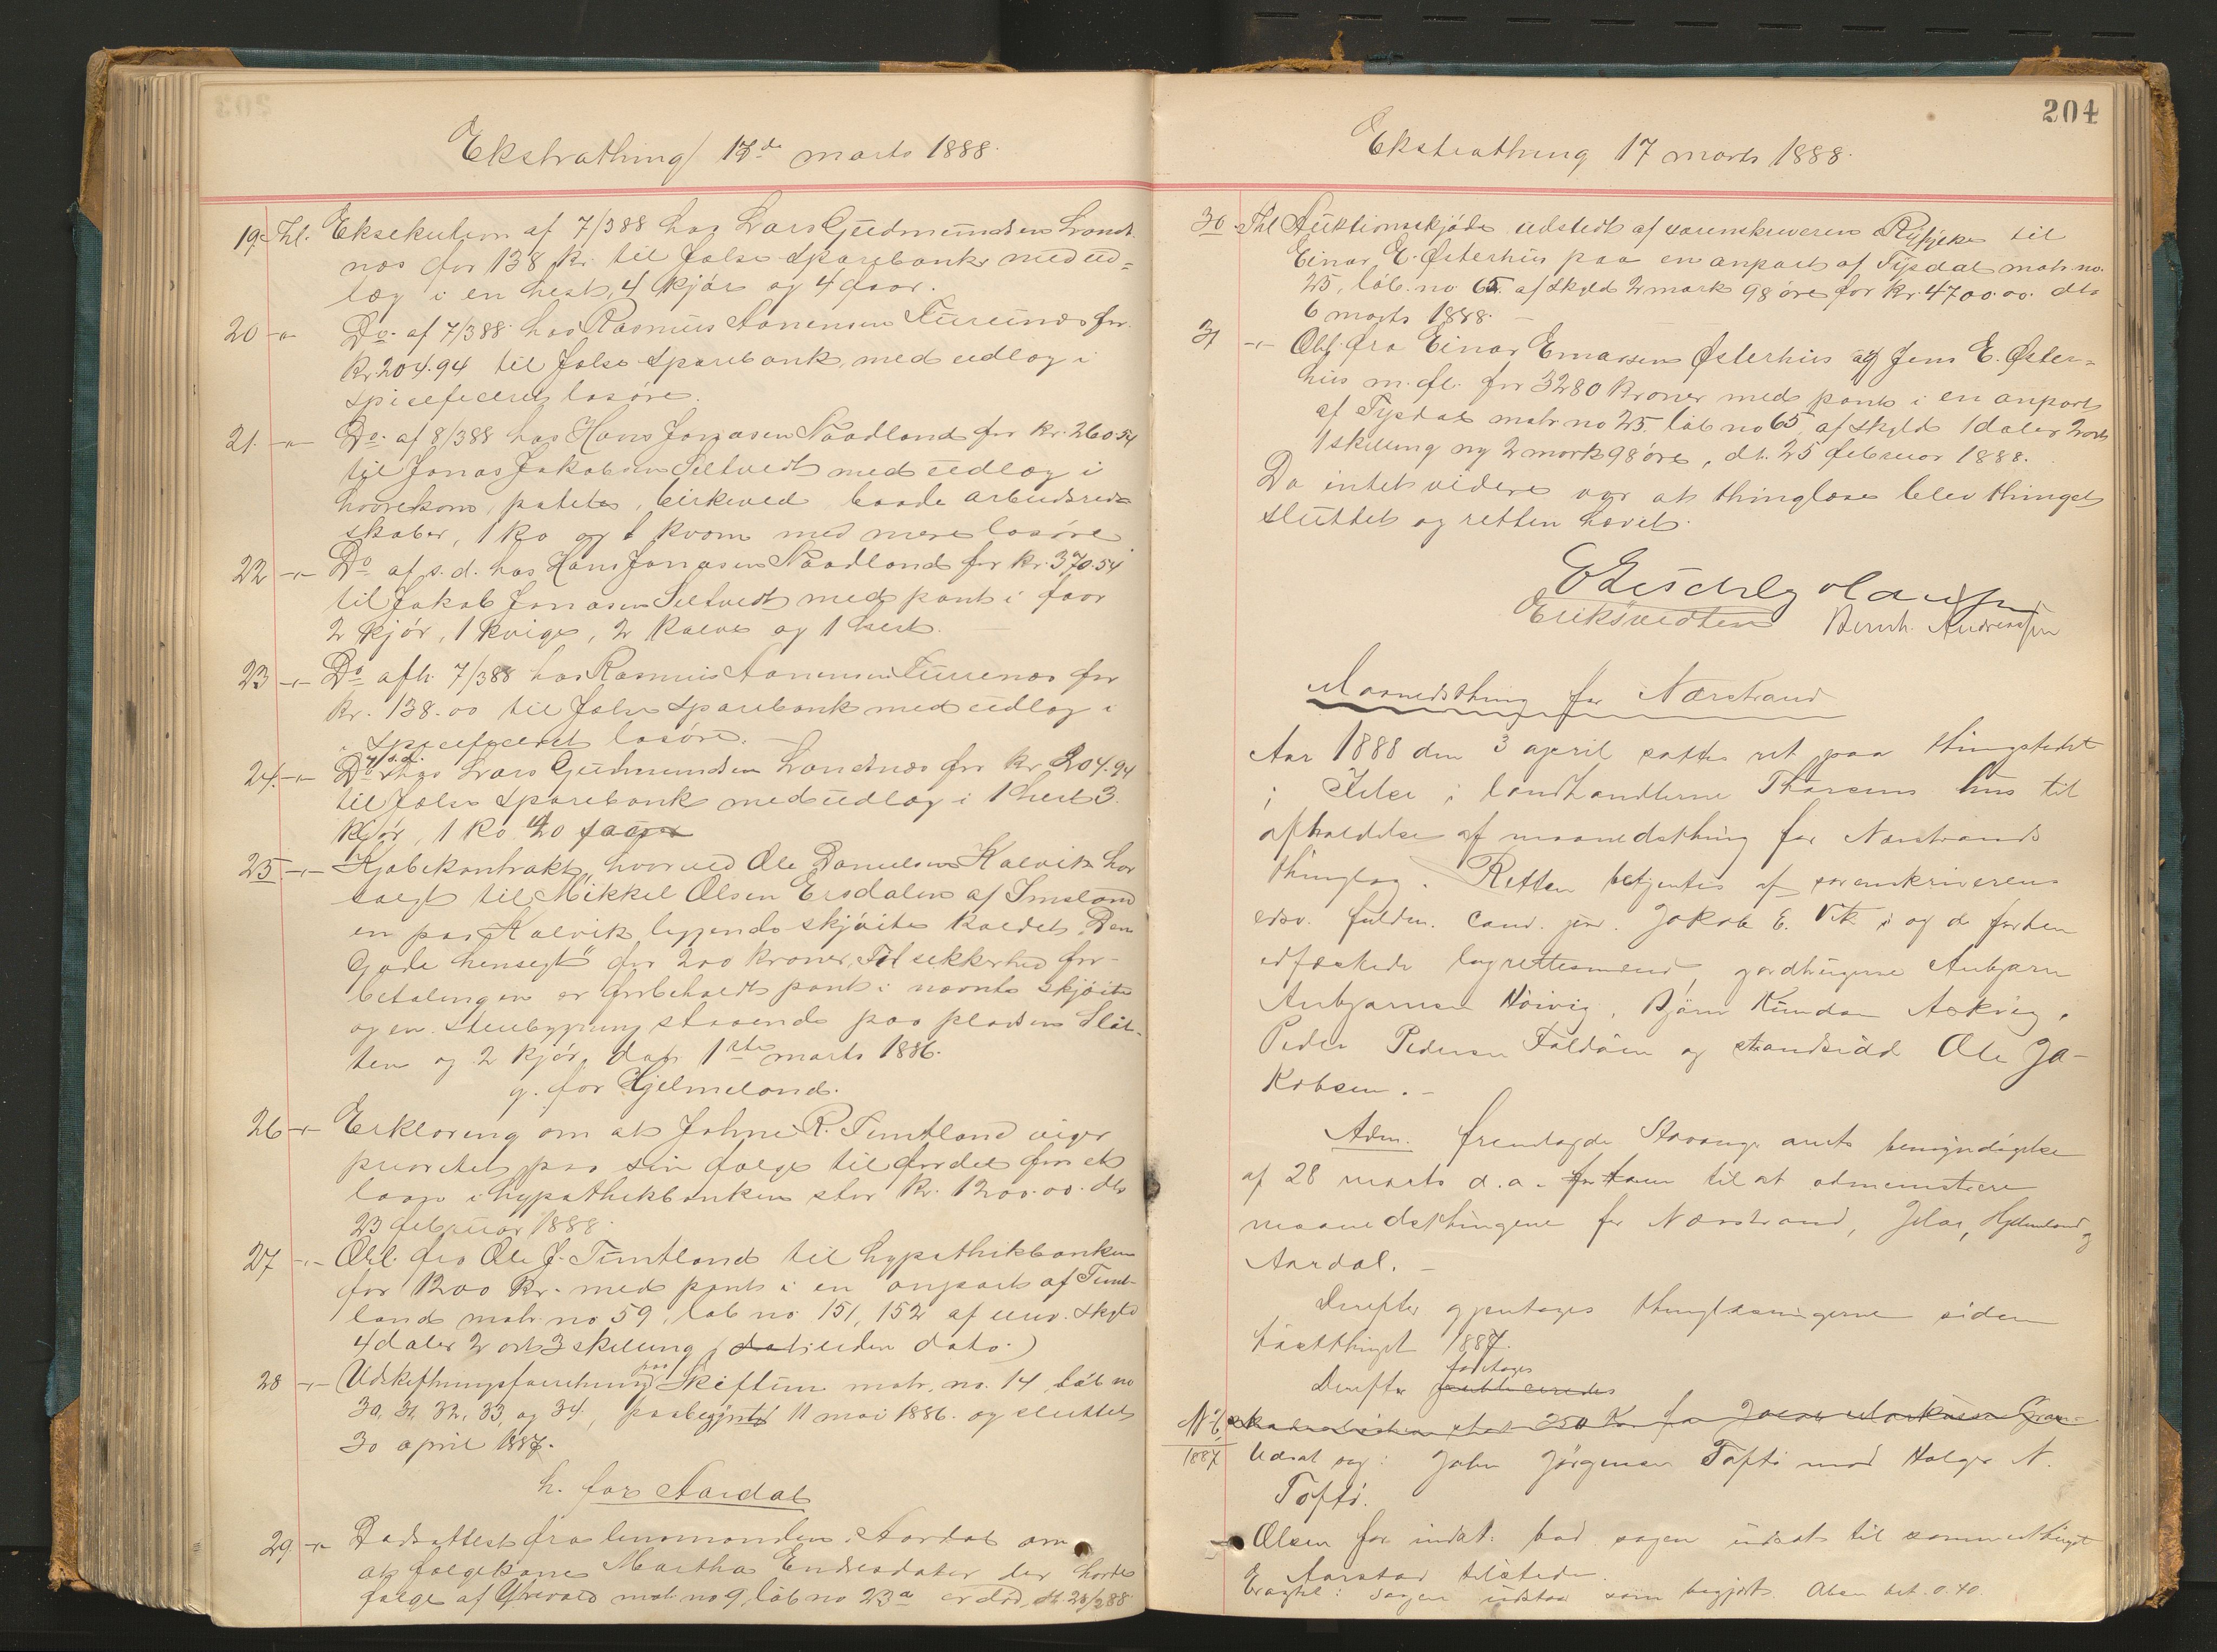 Ekstrathing 17de marts 1888.
19. Thl. Eksekution af 7/3 88 hos Lars Gudmundsen Landt-
næs for 138 kr. til Jelse Sparebank med ud=
læg i en hest, 4 kjør og 4 faar.
20 -"- Do. af 7/3 88 hos Rasmus Aanensen Tuvenæs for
kr. 204.94 til Jelse Sparebank med udlæg i
specificeret løsøre.
21. -"- Do. af 8/3 88 hos Hans Jonasen Naadland for kr. 260.54
til Jonas Jakobsen Seltvedt med udlæg i
havrekorn, poteter, birkeved, baade arbeidsred=
skaber, 1 ko og 1 kværn med mere løsøre
22 -"- Do af s. d. hos Hans Jonasen Naadland for kr. 370.54
til Jakob Jonasen Seltvedt med pant i faar
2 kjør, 1 kvige, 2 kalve og 1 hest.
23 -"- Do afh. 7/3 88 hos Rasmus Aanensen Tuvenæs for
kr. 138.00 til Jelse Sparebank med udlæg i
specificeret løsøre.
24. -"- Do 7/3 s.d. hos Lars Gudmundsen Landtnæs for kr. 204.94
til Jelse Sparebank med udlæg i 1 hest 3
kjør, 1 ko
25 -"- Kjøbekontrakt, hvorved Ole Danielsen Kalvik har
solgt til Mikkel Olsen Ersdalen af Imsland
en paa Kalvik liggende skjøite kaldet "Den
Gode hensegt" for 200 kroner. Til sekkerhed for
betalingen er forbeholdt pant i nævnte skjøite
og en stenbygning staaende paa pladsen Slåt-
ten og 2 kjør, dat. 1ste marts 1886.
g. for Hjelmeland.
26 -"- Erklæring om at Johne R. Tuntland viger
prioritet paa sin følge til fordel for et
laan i hypothekbanken stor kr. 1200.00. dt.
23 februar 1888.
27 -"- Obl. fra Ole J. Tuntland til hypothekbanken
for 1200 kr. med pant i en anpart af Tunt-
land matr. no 59, løb no 151, 152 af skyld
4 daler 2 ort 3 skilling (uden dato.)
28 -"- Udskiftningsforretning paa Skiftun matr. no. 14, løb no
30, 31, 32, 33, og 34, paabegyndt 11 mai 1886. og sluttet
30 april 1887.
h. for Aardal
29 -"- Dødsattest fra lensmanden i Aardal om
at følgekone Martha Endresdatter der havde
følge af matr no 9, løb no 23a er død, dt. 28/2 88
204
Ekstrathing 17 marts 1888.
30 Thl Auktionsskjøde udstedt af sorenskriveren i Ryfylke til
Einar E. Østerhus paa en anpart af Tysdal matr. no.
25, løb. no 65. af skyld 2 mark 98 øre for kr. 4700.00. dt.
6 marts 1888.
31 -"- Obl. fra Einar Einarsen Østerhus og Jens E. Øster-
hus m. fl. for 3280 kroner med pant i en anpart
af Tysdal matr no 25 løb no 65, af skyld 1 daler 2 ort
1 skilling ny 2 mark 98 øre, dt. 25 februar 1888.
Da intet videre var at thinglæse blev thinget
sluttet og retten hævet.
Bernh. Andreassen
Maanedsthing for Nærstrand
Aar 1888 den 3 april sattes ret paa thingstedet
i Jelse i landhandlerne Thorsens hus til
afholdelse af maanedsthing for Nærstrands
thinglag. Retten betjentes af sorenskriverens
edsv. fuldm. cand. jur. Jakob E. Vik og de forhen
edfæstede lagrettesmænd, gaardbrugerne Aubjørn
Aubjørnsen Høivig, Bjørn Askvig,
Peder Pedersen Foldøen og strandsidd. Ole Ja-
kobsen.-
Adm. fremlagde Stavanger amts bemyndigelse
af 28 marts d.a. for ham til at administrere
maanedsthingene for Nærstrand, Jelsø, Hjelmeland og
Aardal.-
Derefter gjentages thinglæsningerne siden
høstthinget 1887.
Derefter foretages
No 6
1887 Udsat sag: John Jørgensen Toftø mod Holger N.
Toftø.
Olsen for indst. bad sagen udsat til sommerthinget
Aarstad tilstede.
Eragtet: Sagen udstaar som begjært. Olsen bet. 0.40.